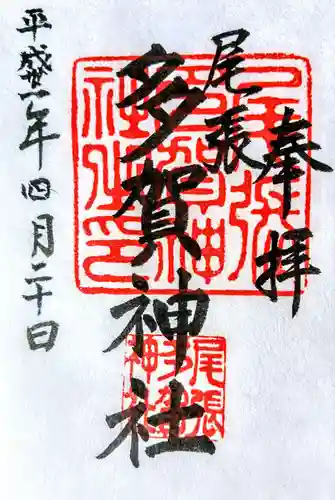 奉拝
尾張
多賀神社
平成廿一年四月二十日
尾張
多賀
神社